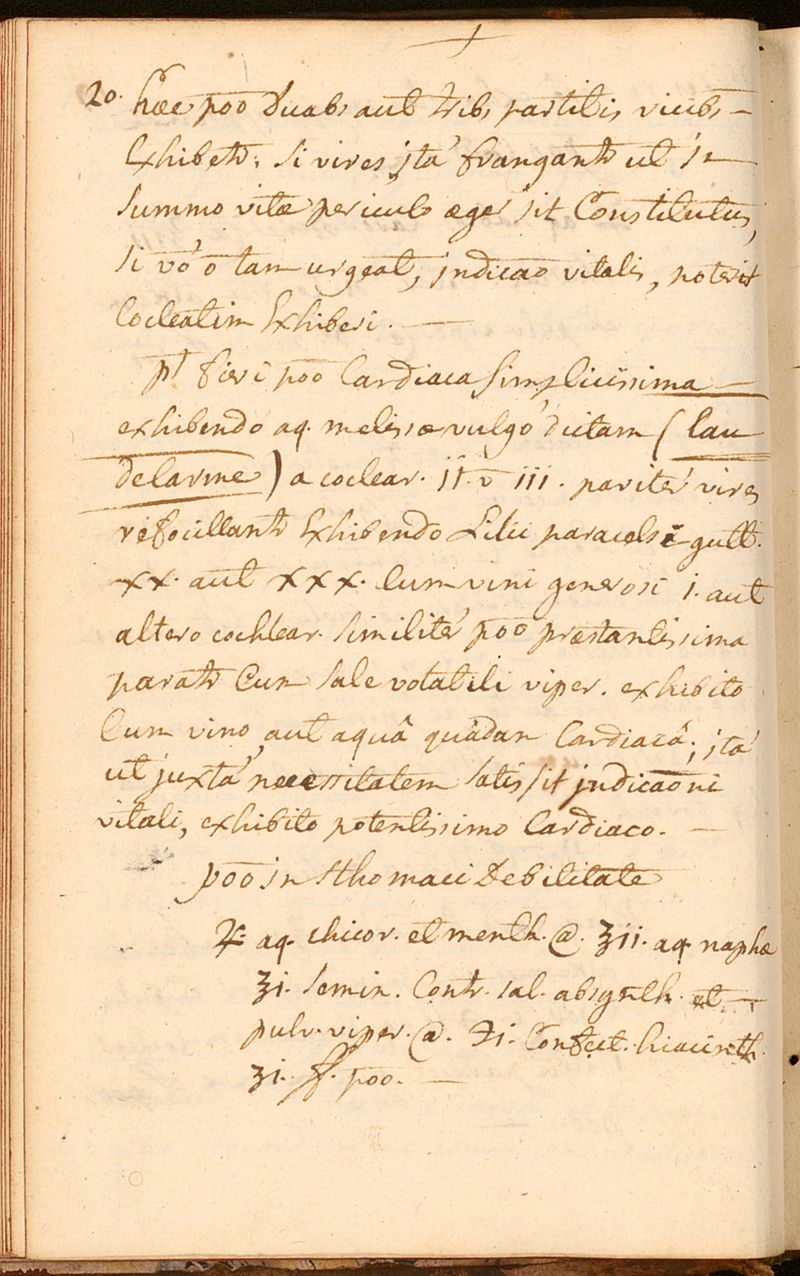 20. hæc poo Duabs aut tribs partitis vicibs
Exhibetr; si vires ità frangantr ut in
summo vitæ periculo æger sit Constitutus,
si vò o tam urgeat, indicao vitalis, poterit
Cocleatim Exhiberi.
pt fieri poo Cardiaca simplicissima
exhibendo aq. melissæ vulgò dictam (Lau
delarme) a coclear. ii. v iii. paritèr vires
refocillantr Exhibendo Lilii paracelsi gutt.
xx. aut xxx. Cum vini generosi i. aut
altero cochlear. similitèr poo præstantissima
paratr Cum sale volatili viper. exhibito
Cum vino, aut aquâ quâdam Cardiacâ; ità
ut juxtà necessitatem satis sit indicaoni
vitali, exhibito potentissimo Cardiaco.
poo in sthomaci Debilitate
℞ aq. chicor. et menth. @. ℥ii. aq. naphæ
℥i. semin. Contr. sal. absynth. et
pulv. viper. @. ℈i. Confect. hiacinth.
ʒi. f. poo.